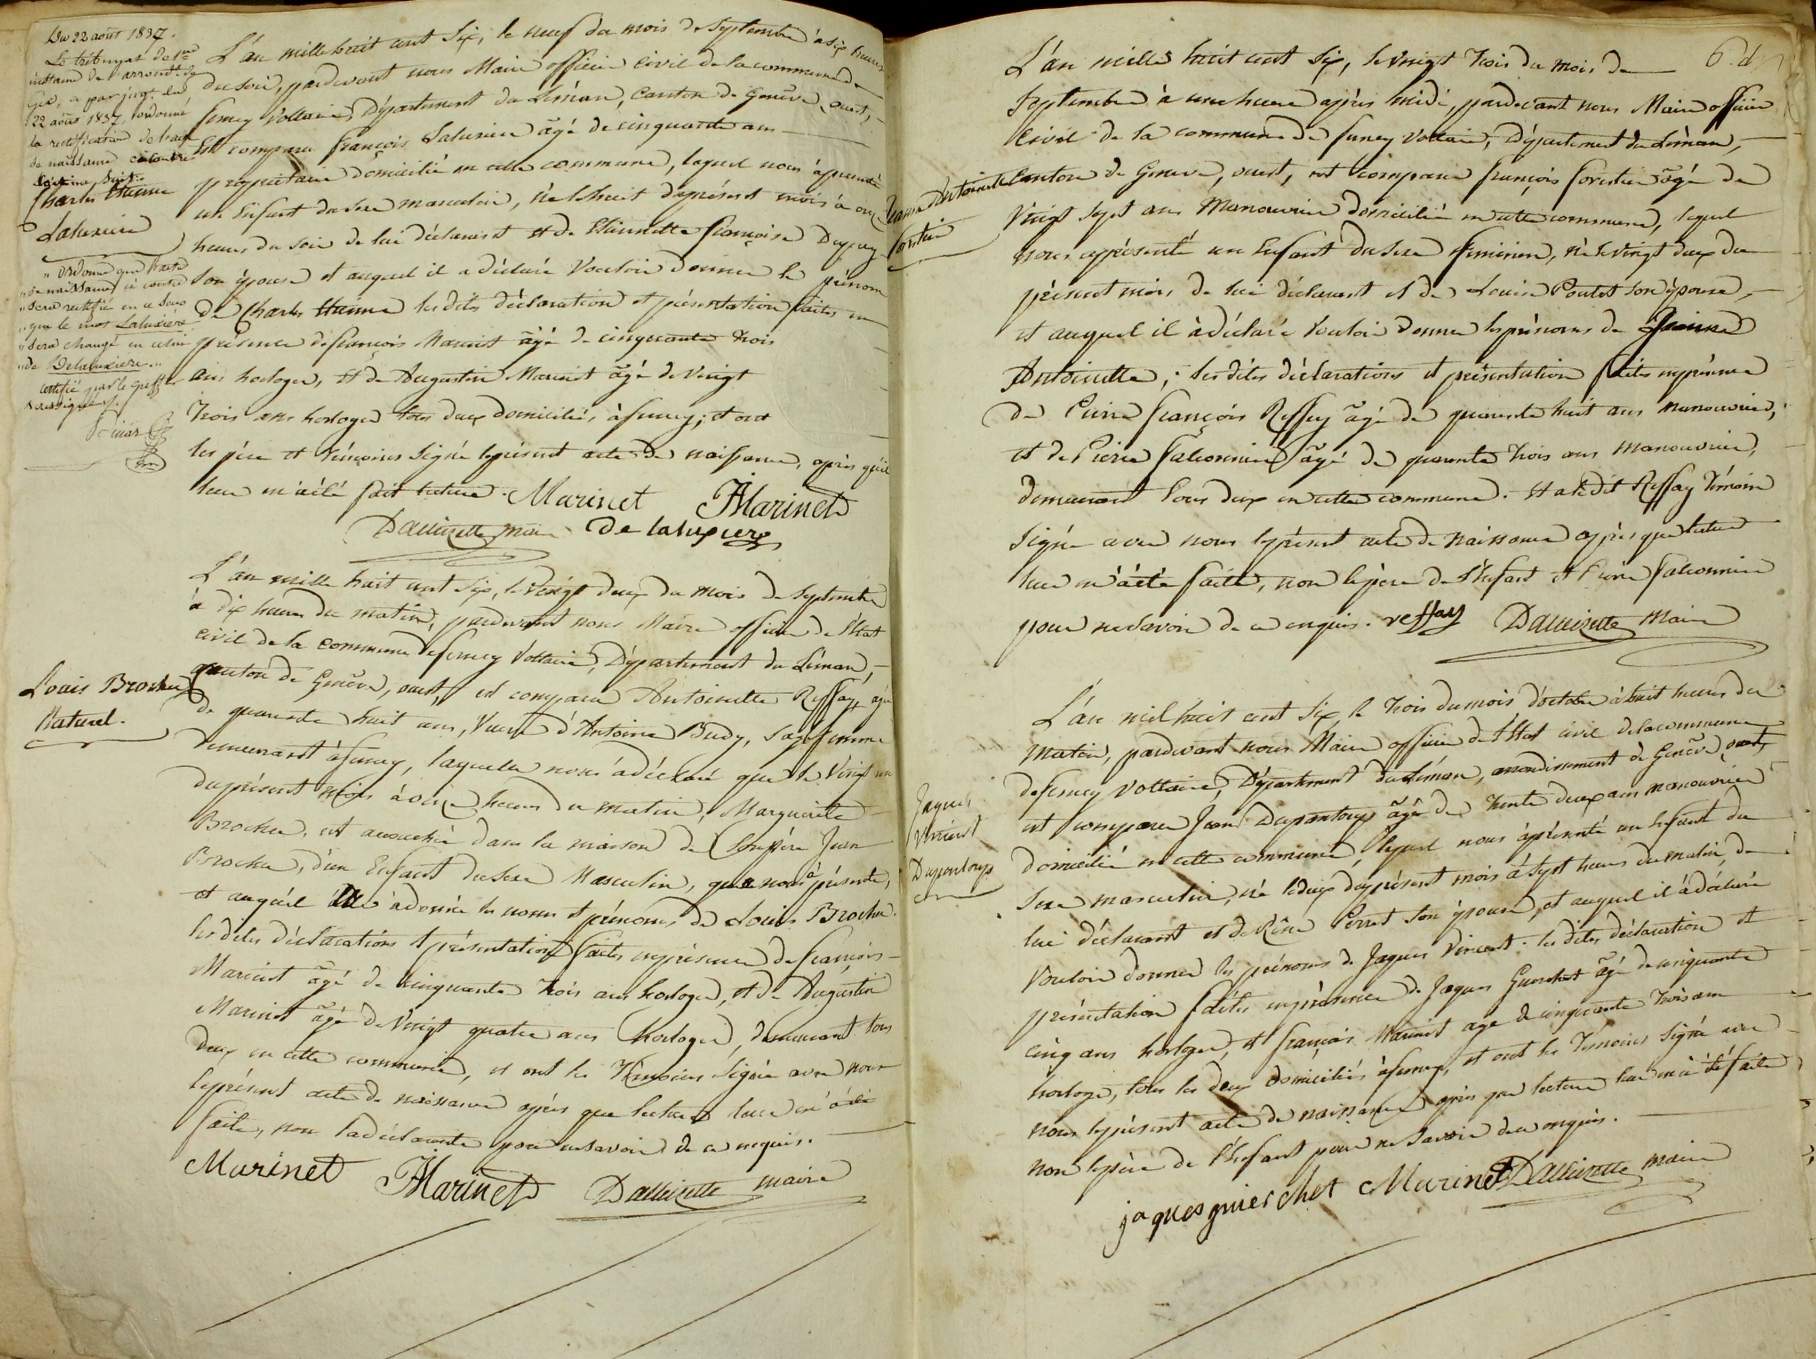 Du 22 août 1837.
Le tribunal de 1ère
instance de l'arrondt de
Gex, a par jugt du
22 août 1837, ordonné
la rectification de l'acte
de naissance ci contre
Charles Etienne
Laluxiere
"ordonne que l'acte
"de naissance ci contre
"sera rectifié en ce sens
"que le mot Laluxière
"sera changé en celui
"de Delaluxiere."
certifié par le greffier
soussigné
L'an mille huit cent Six, le neuf du mois de Septembre à six heures
du soir, pardevant nous Maire officier civil de la commune de
ferney Voltaire, Département du Léman, Canton de Genève, ouest,
Est comparu françois Laluxiere âgé de cinquante ans
propriétaire domicilié en cette commune, lequel nous à présenté
un Enfant du sexe masculin, né le huit du présent mois à onze
heures du soir de lui déclarant et de Etiennette françoise Dupuy
son épouse et auquel il a déclaré vouloir donner le prénom
de Charles Etienne les dites déclaration et présentation faites en
présence de françois Marinet âgé de cinquante trois
ans horloger, et de Augustin Marinet âgé de vingt
trois ans horloger tous deux domiciliés à ferney; et ont
les père et témoins signé le présent acte de naissance, après qu'il
leur en a été fait lecture. Marinet JAMarinet
Dallizette maire de laluxiere
Louis Brochu
Naturel.
L'an mille huit cent Six, le vingt deux du mois de Septembre
à dix heures du matin, pardevant nous Maire officier de l'Etat
civil de la commune de ferney Voltaire, Département du Léman,
Canton de Genève, ouest, est comparu Antoinette Reffay, âgée
de quarante huit ans, Veuve d'Antoine Budy, Sagefemme
demeurant à ferney, laquelle nous à déclaré que le Vingt un
du présent mois à onze heures du matin, Marguerite
Brochu, est accouchée dans la maison de son père Jean
Brochu, d'un Enfant du sexe Masculin, que nous à présenté,
et auquel elle à donné les noms et prénoms de Louis Brochu.
les dites déclarations et présentation faites en présence de françois
Marinet âgé de cinquante trois ans horloger, et de Augustin
Marinet âgé de Vingt quatre ans horloger, demeurant tous
deux en cette commune, et ont les témoins signé avec nous
le présent acte de naissance après que lecture leur en a été
faite, non la déclarante pour ne savoir de ce enquis.
Marinet JAMarinet Dallizette maire
6. d
Antoinette
forestier
L'an mille huit cent Six, le vingt trois du mois de
Septembre à une heure après midi, pardevant nous Maire officier
civil de la commune de ferney Voltaire, Département du Léman,
Canton de Geneve, ouest, est comparu françois forestier âgé de
Vingt Sept ans Manouvrier domicilié en cette commune, lequel
nous à présenté un Enfant du sexe féminin, né le vingt deux du
présent mois de lui déclarant et de Louise Poulet son épouse,
et auquel il à déclaré vouloir donner les prénoms de
Antoinette; les dites déclarations et présentation faites en présence
de Pierre françois Reffay âgé de quarante huit ans manouvrier,
et de Pierre falconnier âgé de quarante trois ans manouvrier,
demeurant tous deux en cette commune. Et a le dit Reffay témoin
Signé avec nous le présent acte de naissance après que lecture
leur en a été faite, non le père de l'Enfant et Pierre falconnier
pour ne savoir de ce enquis. reffay Dallizette Maire
Jaques
Vincent
Dupontoup
L'an mil huit cent Six, le trois du mois d'octobre à huit heures du
matin, pardevant nous Maire officier de l'Etat civil de la commune
de ferney Voltaire, Département du Léman, arrondissement de Genève, ouest,
est comparu Jean Dupontoup âgé de trente deux ans manouvrier
domicilié en cette commune, lequel nous à présenté un Enfant du
sexe masculin, né le deux du présent mois à Sept heures du matin, de
lui déclarant et de Rène Perret son épouse, et auquel il à déclaré
vouloir donner les prénoms de Jaques Vincent. les dites déclaration et
présentation faites en présence de Jaques Guerchet âgé de cinquante
cinq ans horloger, et françois Marinet age de cinquante trois ans
horloger, tous les deux domiciliés à ferney, et ont les témoins signé avec
nous le présent acte de naissance après que lecture leur en à été faite,
non le père de l'Enfant pour ne savoir de ce enquis.
jaques guierchet Marinet Dallizette maire